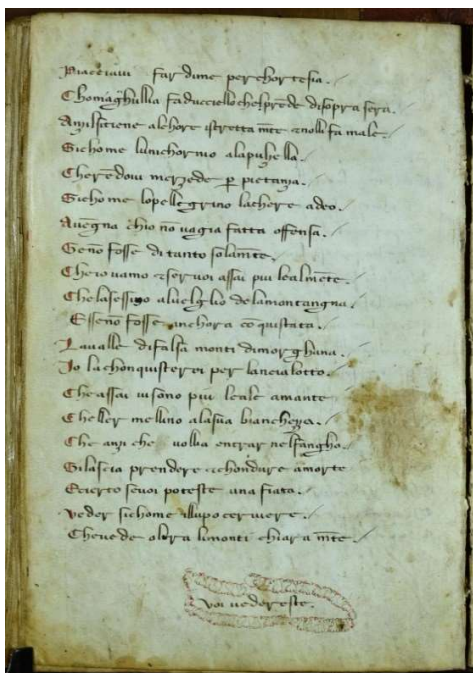 Piacciavi far dime per chortesia.
Chomaghullia fa duccello che sprede disopra sera.
Anzilsitiene alchore istretta mte enolli fa male.
Sichome lunichorno alapulzella.
Cheredovi merzede p pietanza.
Sichome lopellegrino lachere adeo.
Avegna chio no vagia fatta offensa.
Seno fosse di tanto solamte.
Cheio vamo eservoi assai piu lealmete.
Chelasessino alveglio delamontangna.
Esseno fosse anchora coquistata.
Lavalle difalsa monti dimorghana.
Io lachonquisterei per lancialotto.
Che assai vi sono piu leale amante
Cheller mellino alasua bianchezza.
Che anzi che volglia entrar nelfangho.
Silascia prendere echondure amorte
Ecierto sevoi poteste una fiata.
Veder sichome illupo cerviere.
Chevede oltra limonti chiara mte.
Voi vedereste.